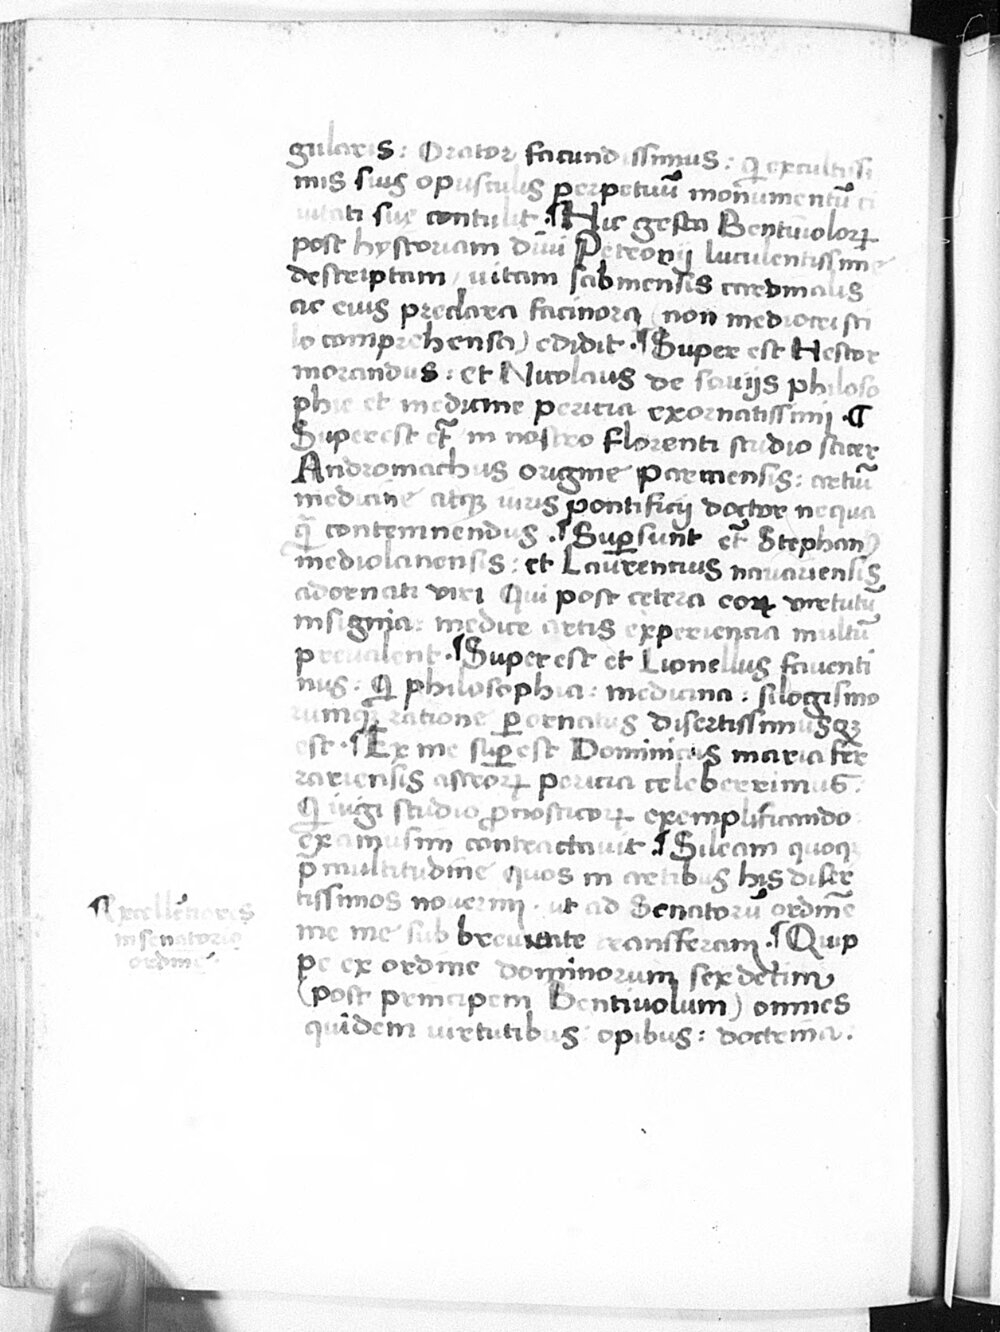 gularis: Orator facundissimus: qͥ excultissi
mis suis opusculis perpetuū monumentū ci
uitati sue contulit. ¶ Hic gesta Bentiuoloꝝ
post hystoriam diui Petronij luculentissime
descriptam, uitam sabinensis cardinalis
ac eius preclara facinora (non mediocri sti
lo comprehensa) edidit. ¶ Super est Hestor
morandus: et Nicolaus de sauijs philoso
phie et medicine pericia exornatissimi. ¶
Superest et̄ in nostro florenti studio sacer
Andromachus origine parmensis: artiū
medicine atqꝫ iuris pontificij doctor nequa
q̄ contemnendus. ¶ Suꝑsunt et̄ Stephanꝰ
mediolanensis: et Laurentius nauariensis
adornati viri Qui post cetera eoꝝ virtutū
insignia: medice artis experiencia multū
preualent. ¶ Superest et Lionellus fauenti
nus: Qͥ philosophia: medicina: silogismo
rumqꝫ ratione ꝑornatus disertissimusqꝫ
est. ¶ Ex me suꝑest Dominicus maria fer
rariensis astroꝝ pericia celeberrimus:
Qͥ iugi studio ꝓnosticoꝝ exemplificando
examusim contractauit. ¶ Sileam quoqꝫ
p̄ multitudine quos in artibus his diser
tissimos nouerim. ut ad Senatorū ordinē
me me sub breuitate transferam. ¶ Quip
pe ex ordine dominorum sexdecim
(post principem Bentiuolum) omnes
quidem uirtutibus opibus: doctrina.
¶ Excellētiores
in senatorio
ordine.